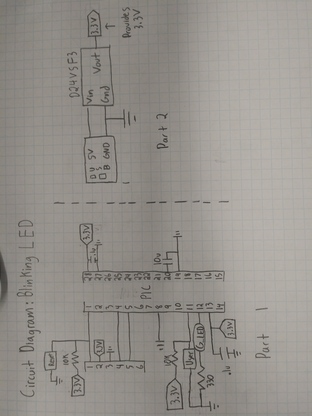 Circuit Diagram: Blinking LED
Reset
10K
3.3V
1
2
3.3V
3
4
5
6
1
2
3
4
5
6
7
8
9
10
11
12
13
14
PIC
28
27
26
25
24
23
22
21
20
19
18
17
16
15
3.3V
.1u
10u
3.3V
10K
User
G.LED
330
.1u
3.3V
Part 1
USB
5V
GND
D24V5F3
Vin
Gnd
Vout
3.3V
Provides
3.3V
Part 2